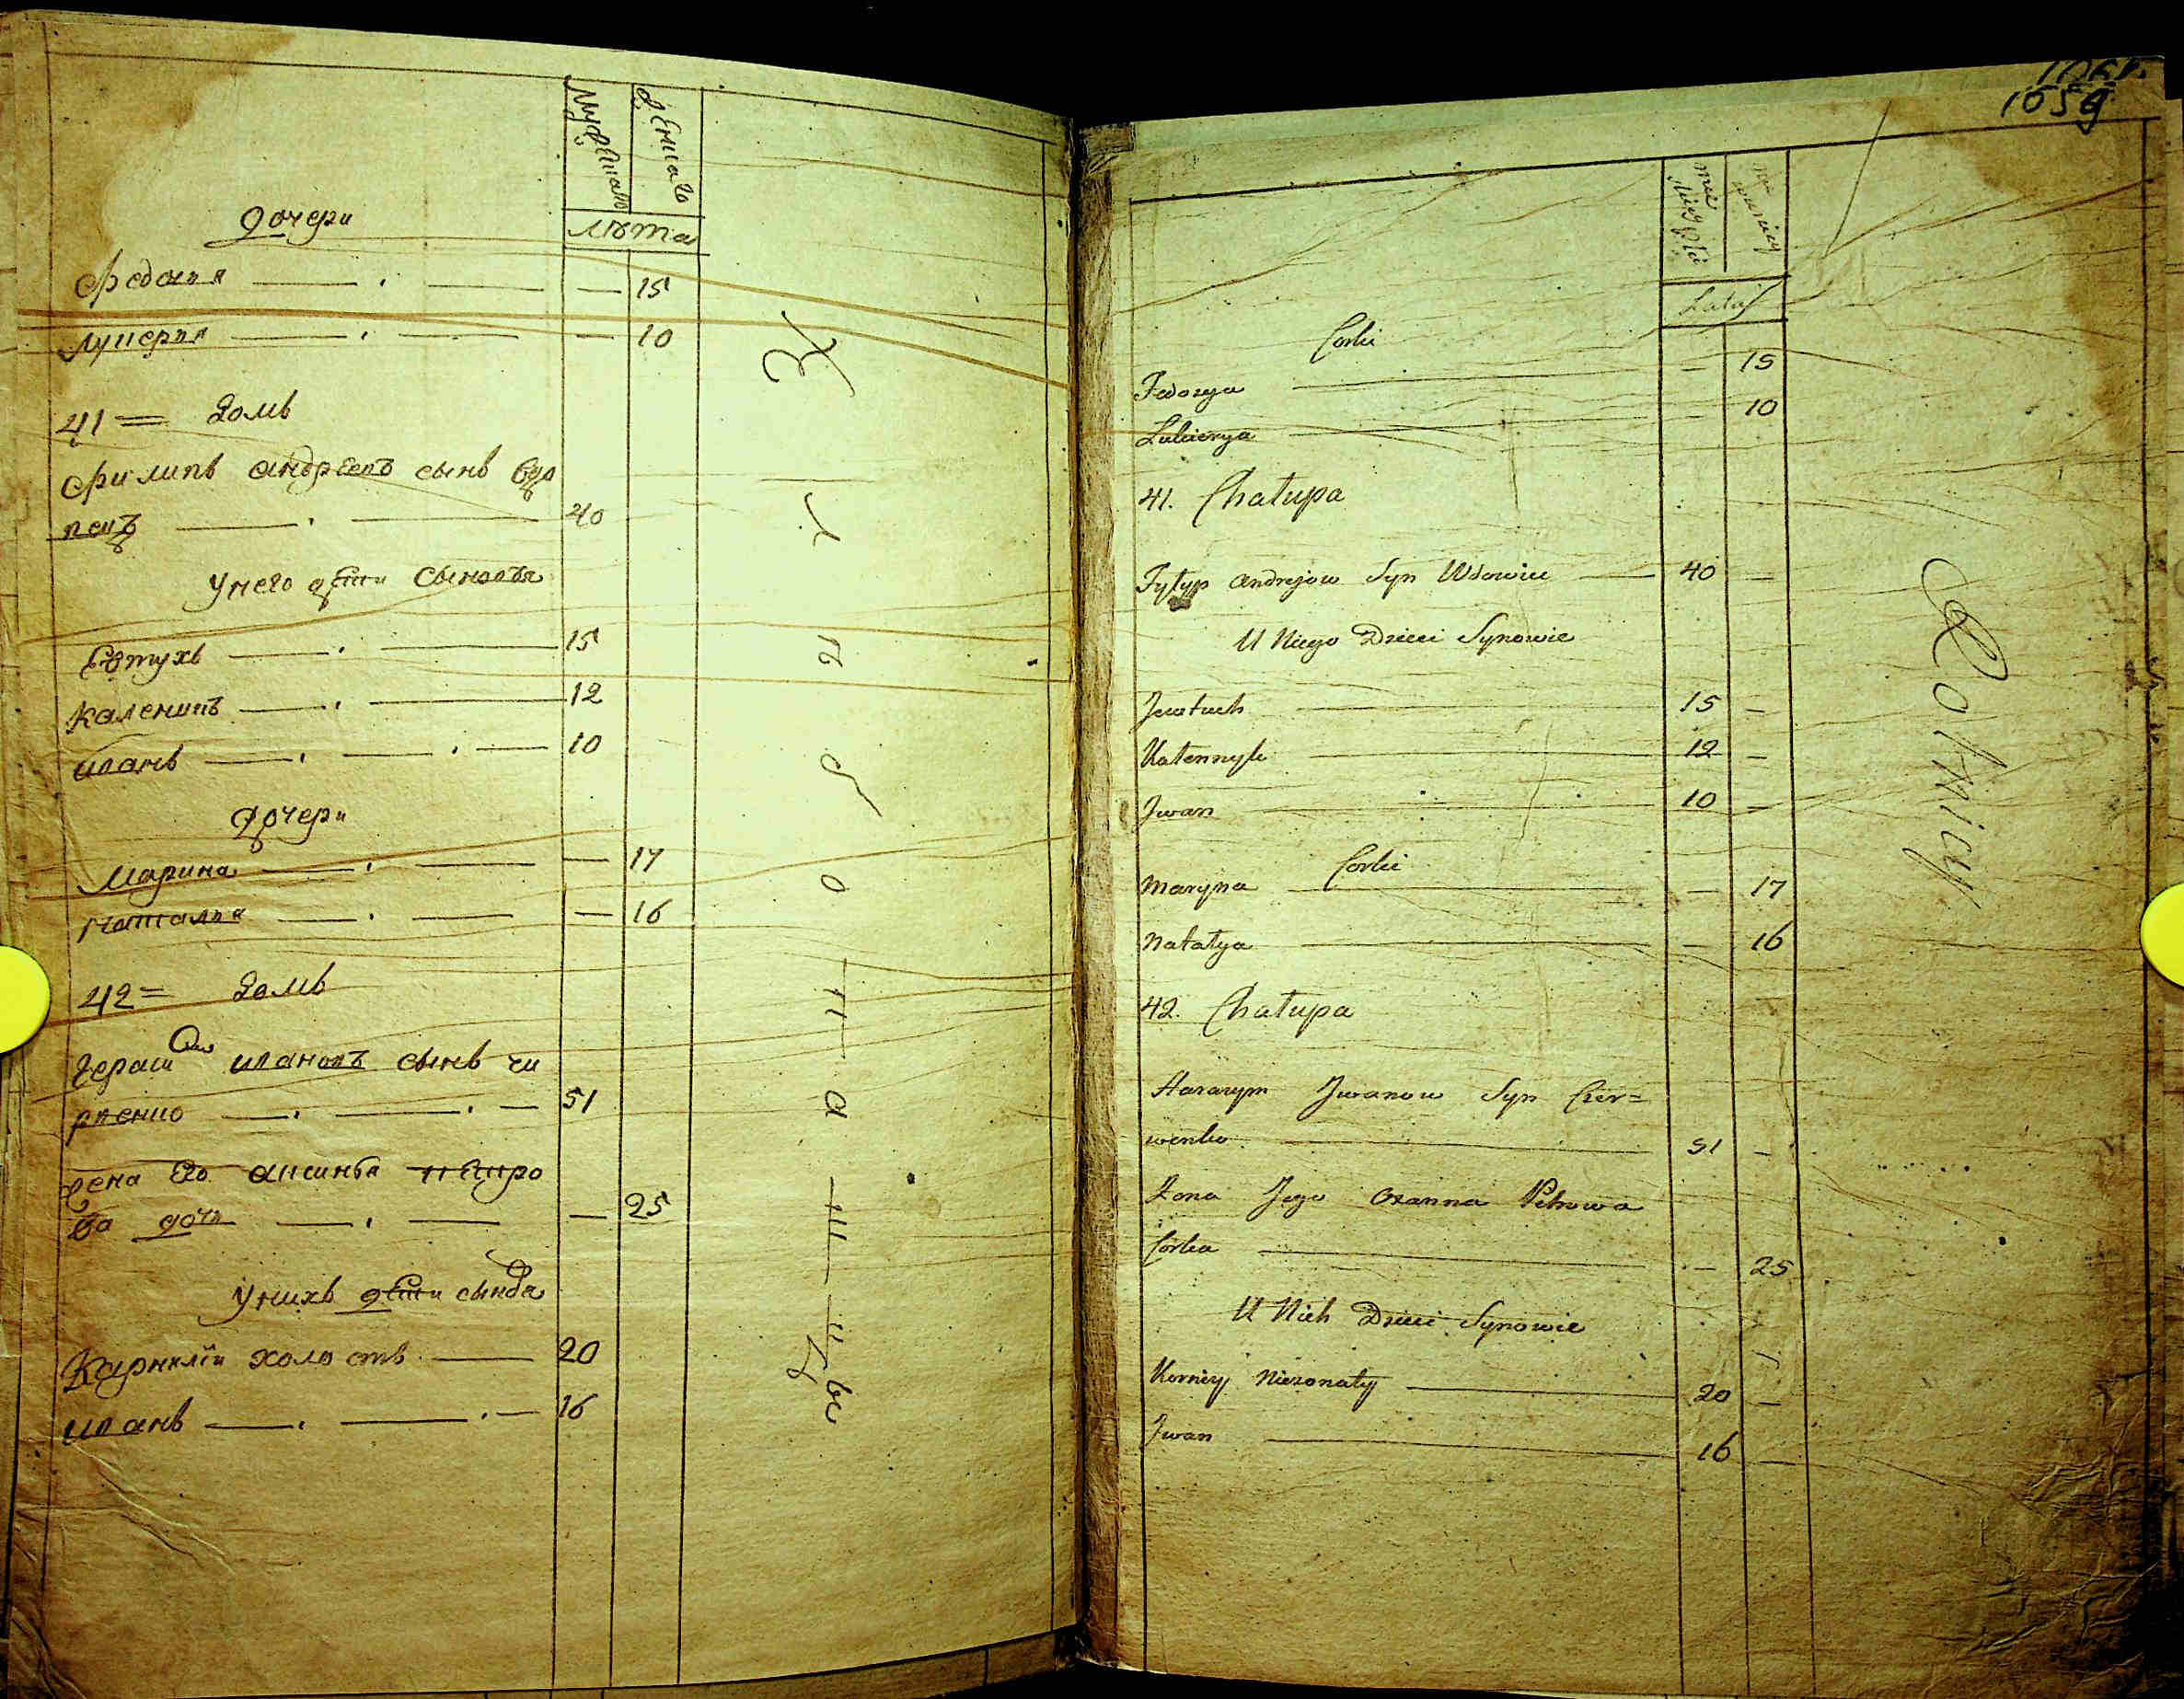 Мужеска
Женска
лѣта
дочери
Федосия — — — 15
Лукерия — — — 10
41 = домъ
Филипъ андреевъ сынъ вдо
вецъ — — 40
У него дѣти сыновья
Евтухъ — — 15
Каленикъ — — 12
иванъ — — — 10
дочери
Марина — — — 17
Наталия — — — 16
42 = домъ
Герасим ивановъ сынъ чи
рвенко — — — 51
жена его аксинья петро
ва дочь — — — 25
У нихъ дѣти сынья
Карнилїи холостъ — 20
иванъ — — — 16
Хлѣбопашцы
1059
Lata
Corki
Fedosya — — 15
Lukierya — — 10
41. Chałupa
Fyłyp Andrejow Syn Wdowiec — 40 —
U Niego Dzieci Synowie
Jewtuch — 15 —
Kałennyk — 12 —
Jwan — 10 —
Corki
Maryna — — 17
Natałya — — 16
42. Chałupa
Harasym Jwanow Syn Czer=
wenko — 51 —
Żona Jego Oxanna Petrowa
Corka — — 25
U Nich Dzieci Synowie
Korniey Nieżonaty — 20 —
Jwan — 16 —
Rolnicy